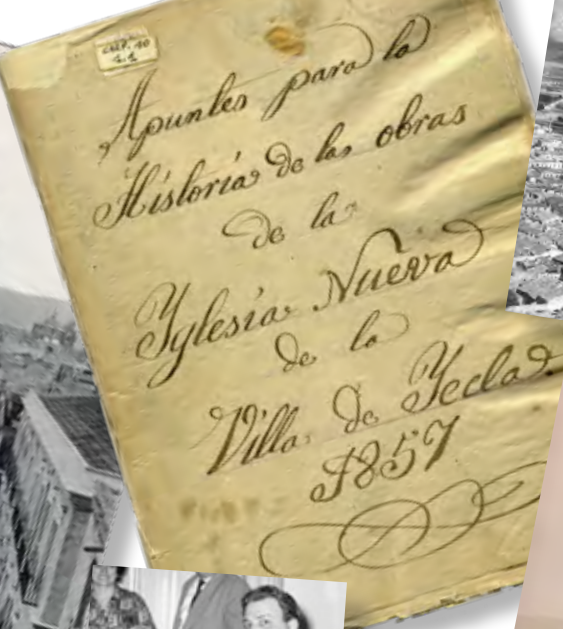 Apuntes para la
Historia de las obras
de la
Yglesia Nueva
de la
Villa de Yecla.
1857